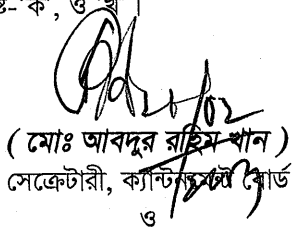 'ক', ও 'খ'।
( মোঃ আবদুর রহিম খান )
সেক্রেটারী, ক্যান্টনমেন্ট বোর্ড
ও